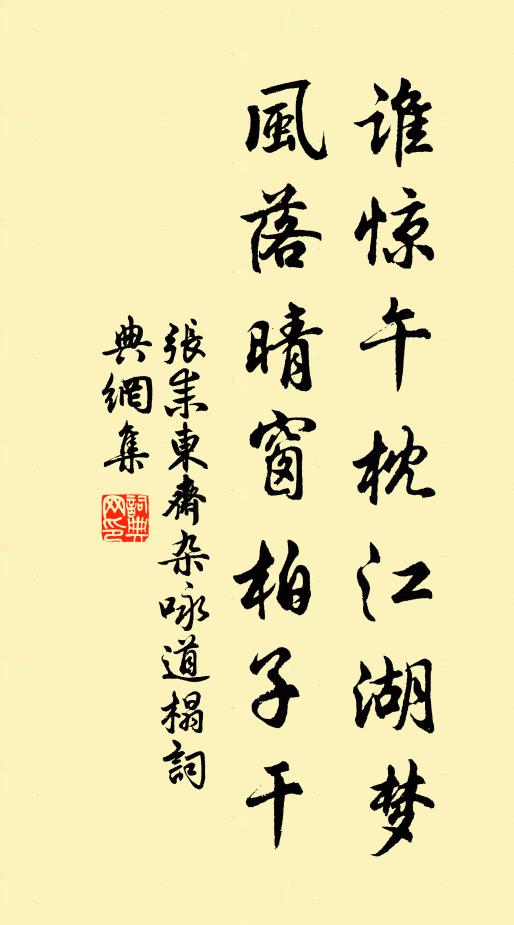 谁惊午枕江湖梦
風落晴窗柏子干
張耒東齋杂咏道榻詞
典網集
詞典
网印